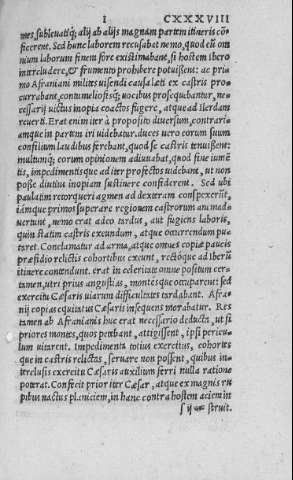 I CXXXVIII
nes, subleuatiq; alij ab alijs magnam partem itineris cõ
ficerent. Sed hunc laborem recusabat nemo, quod eũ om
nium laborum finem fore existimabant, si hostem Ibero
intercludere, & frumento prohibere potuissent: ac pri
mo Afraniani milites uisendi causa læti ex castris pro
currebant, contumeliosisq; uocibus prosequebantur, ne
cessarij uictus inopia coactos fugere, atque ad Ilerdam
reuerti. Erat enim iter à proposito diuersum, contrari
amque in partem iri uidebatur. duces uero eorum suum
consilium laudibus ferebant, quod se castris tenuissent:
multumq; eorum opinionem adiuuabat, quod sine iumẽ
tis, impedimentisque ad iter profectos uidebant, ut non
posse diutius inopiam sustinere confiderent. Sed ubi
paulatim retorqueri agmen ad dextram conspexerũt,
iãmque primos superare regionem castrorum animad
uertunt, nemo erat adeo tardus, aut fugiens laboris,
quin statim castris exeundum, atque occurrendum pu
taret. Conclamatur ad arma, atque omnes copiæ paucis
præsidio relictis cohortibus exeunt, rectoque ad Iberũ
itinere contendunt. erat in celeritate omne positum cer
tamen, utri prius angustias, montesque occuparent: sed
exercitũ Cæsaris uiarum difficultates tardabant. Afra
nij copias equitatus Cæsaris insequens morabatur. Res
tamen ab Afranianis huc erat necessario deducta, ut si
priores montes, quos petebant, attigissent, ipsi pericu
lum uitarent. Impedimenta totius exercitus, cohortes
que in castris relictas, seruare non possent, quibus in
terclusis exercitu Cæsaris auxilium ferri nulla ratione
poterat. Confecit prior iter Cæsar, atque ex magnis ru
pibus nactus planiciem, in hanc contra hostem aciem in
s ij struit.